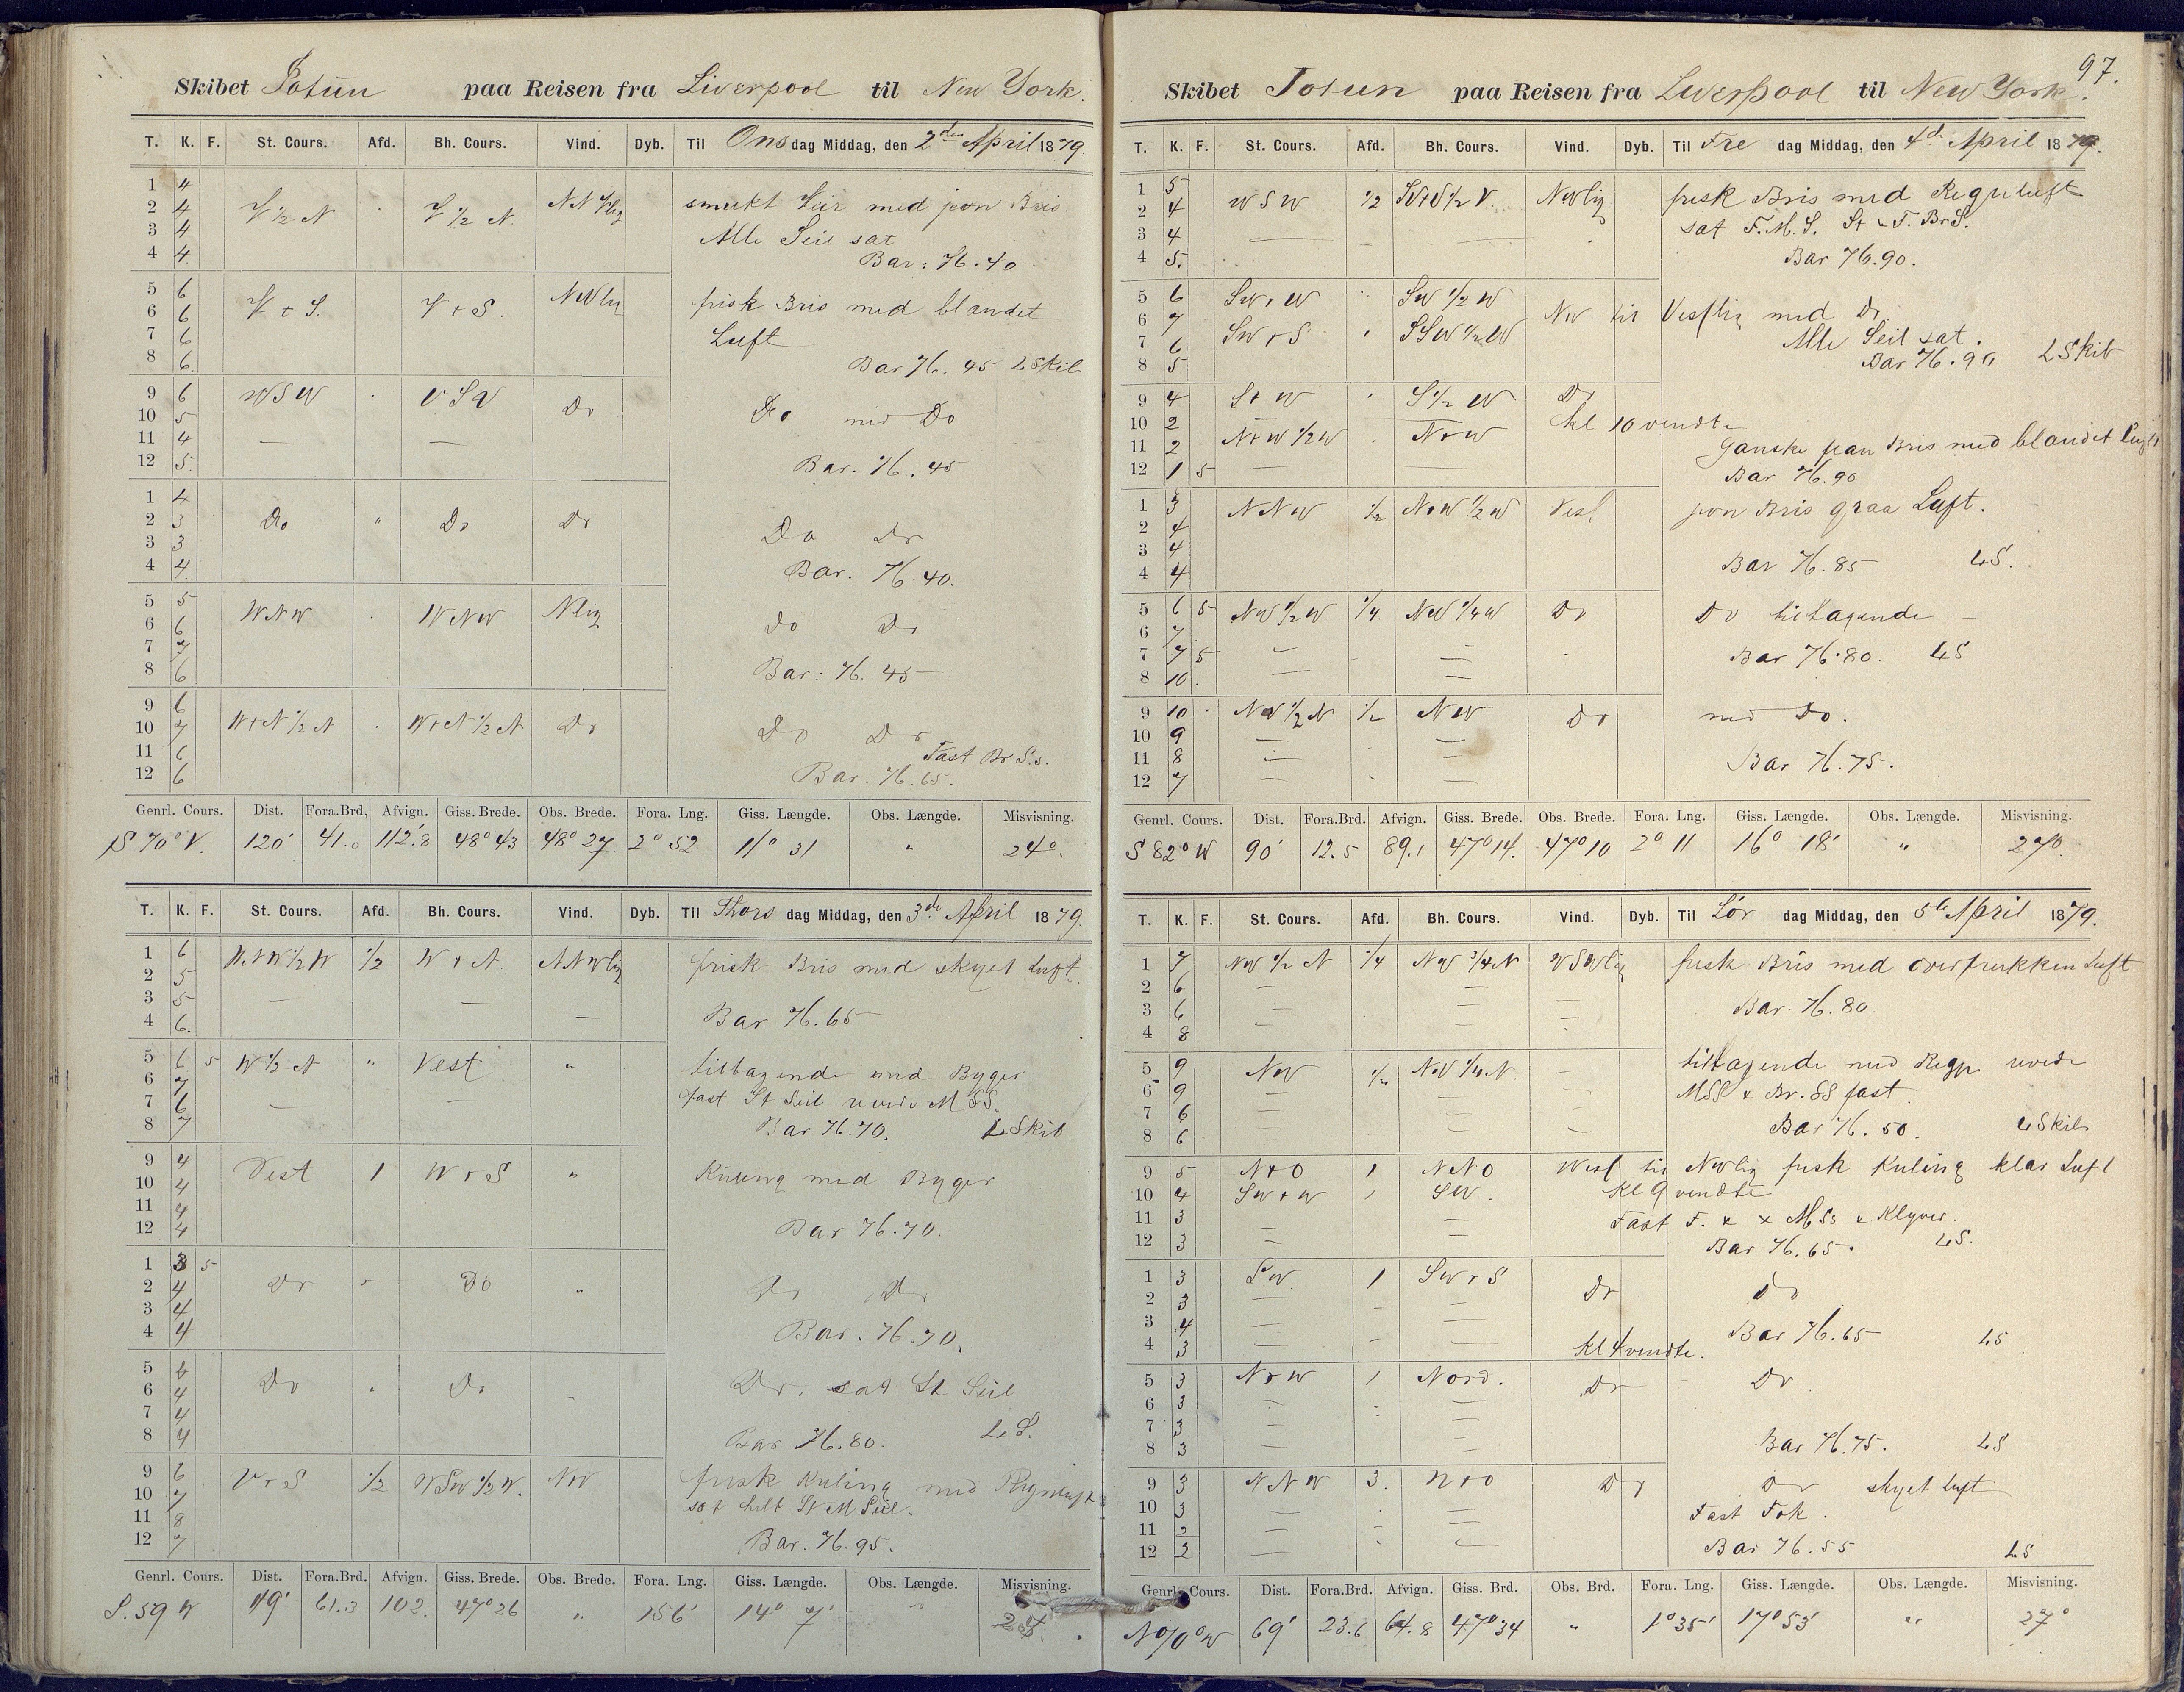 Skibet Jotun paa Reisen fra Liverpool til New York.
T. K. F. St. Cours. Afd. Bh. Cours. Vind. Dyb. Til Onsdag Middag, den 2den April 1879
1 4
2 4 V ½ N " V ½ N. NNVlig smukt Veir med jevn Bris
3 4 Alle Seil sat
4 4 Bar: 76.40
5 6
6 6 V t S. V t S. NVlig frisk Bris med blandet
7 6 Luft
8 6 Bar 76. 45 LSkib
9 6 WSW " VSV Do
10 5 Do med Do
11 4 — —
12 5 Bar. 76. 45
1 4
2 3 Do " Do Do
3 3 Do Do
4 4 Bar. 76.40.
5 5 WNW " WNW Nlig
6 6 Do Do
7 7
8 6 Bar: 76. 45
9 6
10 7 WtN ½ N " WtN ½ N Do Do Do
11 6 Fast Br S.s.
12 6 Bar. 76.65.
Genrl. Cours. Dist. Fora.Brd, Afvign. Giss. Brede. Obs. Brede. Fora. Lng. Giss. Længde. Obs. Længde. Misvisning.
S 70° V. 120' 41.0 112'.8 48° 43 48° 27 2° 52 11° 31 " 24°.
T. K. F. St. Cours. Afd. Bh. Cours. Vind. Dyb. Til Thorsdag Middag, den 3de April 1879.
1 6 ½ W t N. NNWlig frisk Bris med skyet Luft.
2 5
3 5 — — —
4 6. Bar 76.65
5 6 5 W ½ N " Vest " tiltagende med Byger
6 7
7 6 — — fast St Seil
8 7 Bar 76.70. LSkib
9 4 Vest 1 W t S " Kuling med Byger
10 4
11 4
12 4 Bar 76.70.
1 3 5
2 4 Do Do " Do Do
3 4
4 4 Bar. 76.70.
5 4
6 4 Do " Do Do. sat St Seil
7 4
8 4 Bar 76.80. L S.
9 6 V t S ½ WSW ½ W. NW frisk Kuling med Regnluft
10 7 sat helt St M Seil.
11 8
12 7 Bar. 76.95.
Genrl. Cours. Dist. Fora.Brd. Afvign. Giss. Brede. Obs. Brede. Fora. Lng. Giss. Længde. Obs. Længde. Misvisning.
S. 59 W 119' 61.3 102. 47° 26 " 156' 14° 7' "
97.
Skibet Jotun paa Reisen fra Liverpool til New York.
T. K. F. St. Cours. Afd. Bh. Cours. Vind. Dyb. Til Fredag Middag, den 4de April 1879.
1 5 WSW ½ NWlig frisk Bris med Regnluft
2 4 sat F.M.S. St & F. Br S.
3 4 — —
4 5. Bar 76.90.
5 6 SWtW " SW ½ W
6 7 NW til Vestlig med Do
7 6 SWtS " SSW ½ W Alle Seil sat.
8 5 Bar 76.90 LSkib
9 4 StW " S ½ W Do
10 2 Kl 10 vendte
11 2 NtW ½ W " NtW Ganske flau Bris med blandet Luft
12 1 5 — — Bar 76.90
1 3 NNW ½ NtW ½ W Vestl jevn Bris graa Luft.
2 4
3 4
4 4 Bar 76.85 LS.
5 6 5 NW ½ W ¼. NW ¼ W Do Do tiltagende
6 7
7 7 5 — — Bar 76.80. LS
8 10. — —
9 10 NW ½ N ½ NW Do med Do.
10 9 — —
11 8 — — Bar 76.75.
12 7 — —
Genrl. Cours. Dist. Fora.Brd. Afvign. Giss. Brede. Obs. Brede. Fora. Lng. Giss. Længde. Obs. Længde. Misvisning.
S 82° W 90' 12.5 89.1 47° 14. 47° 10 2° 11 16° 18' " 27°.
T. K. F. St. Cours. Afd. Bh. Cours. Vind. Dyb. Til Lørdag Middag, den 5te April 1879.
1 7 NW ½ N ¼ NW ¾ N WSWlig frisk Bris med overtrukken Luft
2 6 — —
3 6 — — — Bar 76.80
4 8 — —
5 9 NW ¼ NW ¼ N. — tiltagende med
6 9 — — — MSS & Br. SS fast.
7 6 — — —
8 6 — — — Bar 76.50. LSkib
9 5 NtO 1 NNO West til NWlig frisk Kuling klar Luft
10 4 SWtW 1 SW. Kl 9 vendte
11 3 — — Fast F. & MSs & Klyver.
12 3 — — Bar 76.65. LS.
1 3 SW 1 SWtS Do Do
2 3 — —
3 4 — — Bar 76.65 LS
4 3 — — Kl 4 vendte.
5 3 NtW 1 Nord. Do Do.
6 3 — —
7 3 — —
8 3 — — Bar 76.75. LS
9 3 NNW 3. NtO Do Do skyet Luft
10 3 — — Fast Fok.
11 2 — —
12 2 — — Bar 76.55 LS
Genrl. Cours. Dist. Fora.Brd. Afvign. Giss. Brd. Obs. Brd. Fora. Lng. Giss. Længde. Obs. Længde. Misvisning.
N 70° W 69' 23.6 64.8 47° 34 " 1° 35' 17° 53' " 27°